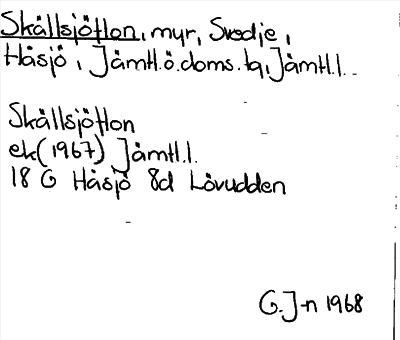 Skållsjötlon, myr, Svedje,
Håsjö, Jämtl.ö.doms.tg, Jämtl.l.
Skållsjötlon
ek(1967) Jämtl.l.
18 G Håsjö 8d Lövudden
G.J-n 1968